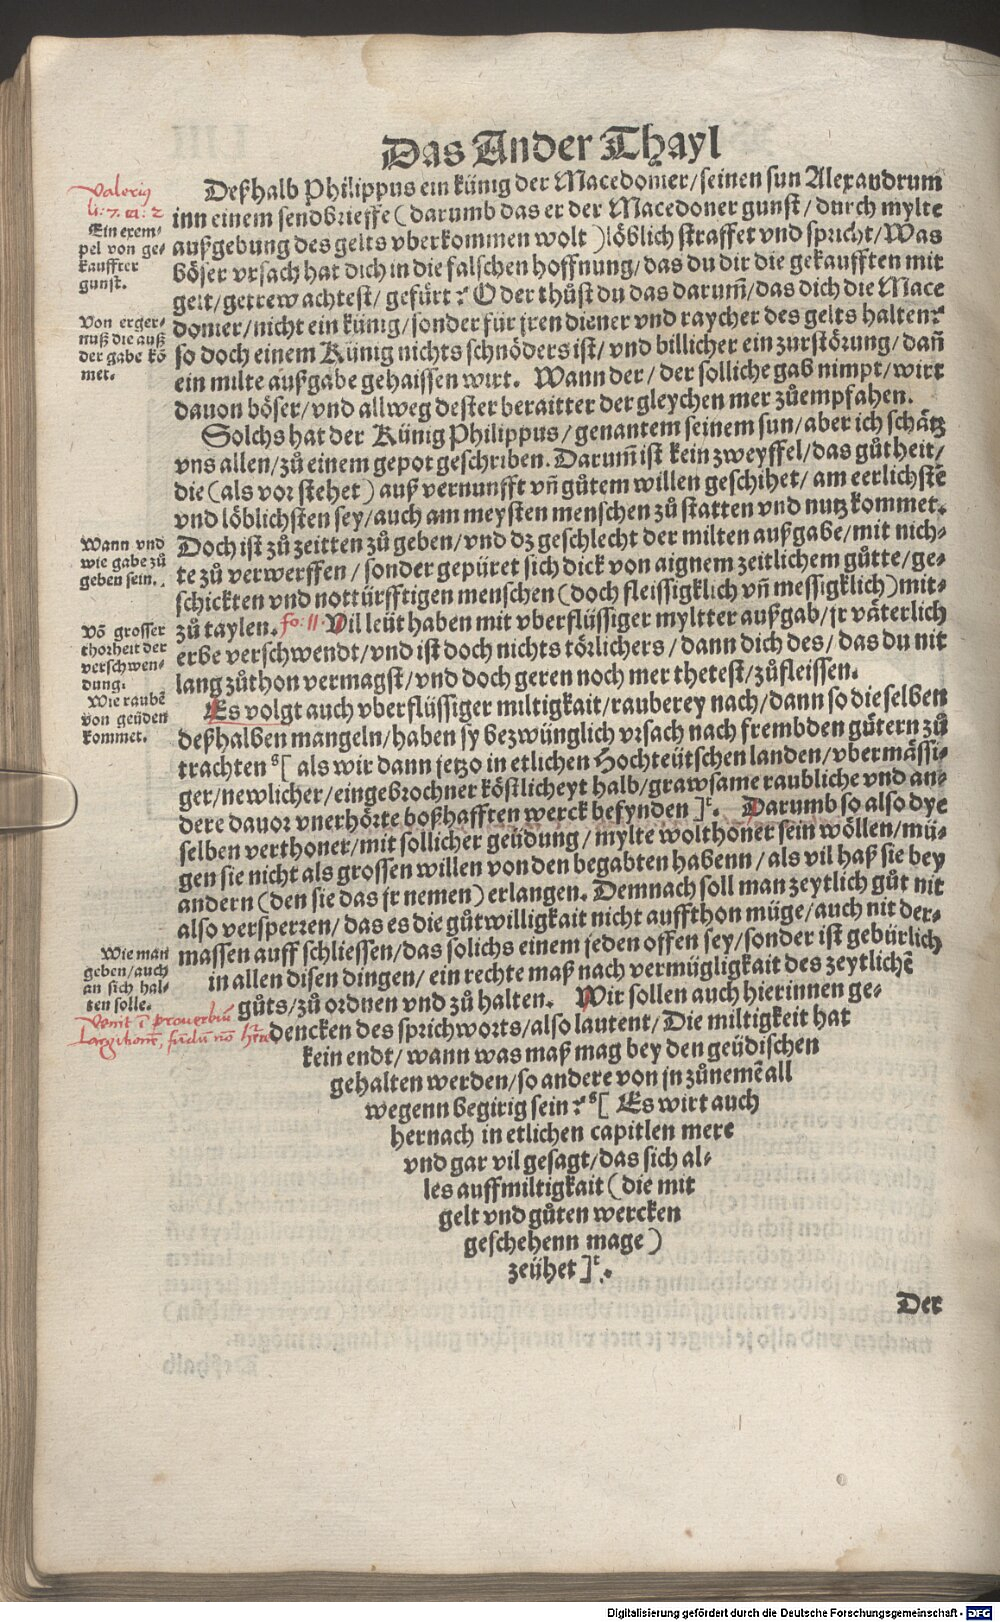 Das Ander Thayl
Deßhalb Philippus ein künig der Macedonier/seinen sun Alexandrum
inn einem sendbrieffe (darumb das er der Macedoner gunst/durch mylte
außgebung des gelts vberkommen wolt) löblich straffet vnd spricht/Was
böser vrsach hat dich in die falschen hoffnung/das du dir die gekaufften mit
gelt/getrew achtest/gefürt? Oder thůst du das darum̃/das dich die Mace
donier/nicht ein künig/sonder für jren diener vnd raycher des gelts halten?
so doch einem Künig nichts schnöders ist/vnd billicher ein zurstörung/dañ
ein milte außgabe gehaissen wirt. Wann der/der solliche gab nimpt/wirt
dauon böser/vnd allweg dester beraitter der gleychen mer zůempfahen.
Solchs hat der Künig Philippus/genantem seinem sun/aber ich schätz
vns allen/zů einem gepot geschriben. Darum̃ ist kein zweyffel/das gůtheit/
die (als vor stehet) auß vernunfft vñ gůtem willen geschihet/am eerlichstẽ
vnd löblichsten sey/auch am meysten menschen zů statten vnd nutz kommet.
Doch ist zů zeitten zů geben/vnd dz geschlecht der milten außgabe/mit nich-
te zů verwerffen/sonder gepüret sich dick von aignem zeitlichem gůtte/ge-
schickten vnd nottürfftigen menschen (doch fleissigklich vñ messigklich) mit-
zů taylen. fo: 11. Vil leüt haben mit vberflüssiger myltter außgab/jr väterlich
erbe verschwendt/vnd ist doch nichts törlichers/dann dich des/das du nit
lang zůthon vermagst/vnd doch geren noch mer thetest/zůfleissen.
Es volgt auch vberflüssiger miltigkait/rauberey nach/dann so dieselben
deßhalben mangeln/haben sy bezwünglich vrsach nach frembden gůtern zů
trachten s[ als wir dann jetzo in etlichen Hochteütschen landen/vbermässi-
ger/newlicher/eingebrochner köstlicheyt halb/grawsame raubliche vnd an-
dere dauor vnerhörte boßhafften werck befynden ]t. Darumb so also dye
selben verthoner/mit sollicher geüdung/mylte wolthoner sein wöllen/mü-
gen sie nicht als grossen willen von den begabten habenn/als vil haß sie bey
andern (den sie das jr nemen) erlangen. Demnach soll man zeytlich gůt nit
also versperren/das es die gůtwilligkait nicht auffthon müge/auch nit der-
massen auff schliessen/das solichs einem jeden offen sey/sonder ist gebürlich
in allen disen dingen/ein rechte maß nach vermügligkait des zeytlichẽ
gůts/zů ordnen vnd zů halten. Wir sollen auch hierinnen ge-
dencken des sprichworts/also lautent/Die miltigkeit hat
kein endt/wann was maß mag bey den geüdischen
gehalten werden/so andere von jn zůnemẽ all
wegenn begirig sein? s[ Es wirt auch
hernach in etlichen capitlen mere
vnd gar vil gesagt/das sich al-
les auff miltigkait (die mit
gelt vnd gůten wercken
geschehenn mage)
zeühet ]t.
Der
Valerius
li: 7. ca: 2
Ein exem-
pel von ge-
kauffter
gunst.
Von erger-
nuß die auß
der gabe kõ
met.
Wann vnd
wie gabe zů
geben sein.
Võ grosser
thorheit der
verschwen-
dung.
Wie raubẽ
von geüden
kommet.
Wie man
geben/auch
an sich hal-
ten solle.
Venit ĩ proverbiũ
Largitionẽ, fundũ nõ
Digitalisierung gefördert durch die Deutsche Forschungsgemeinschaft - DFG